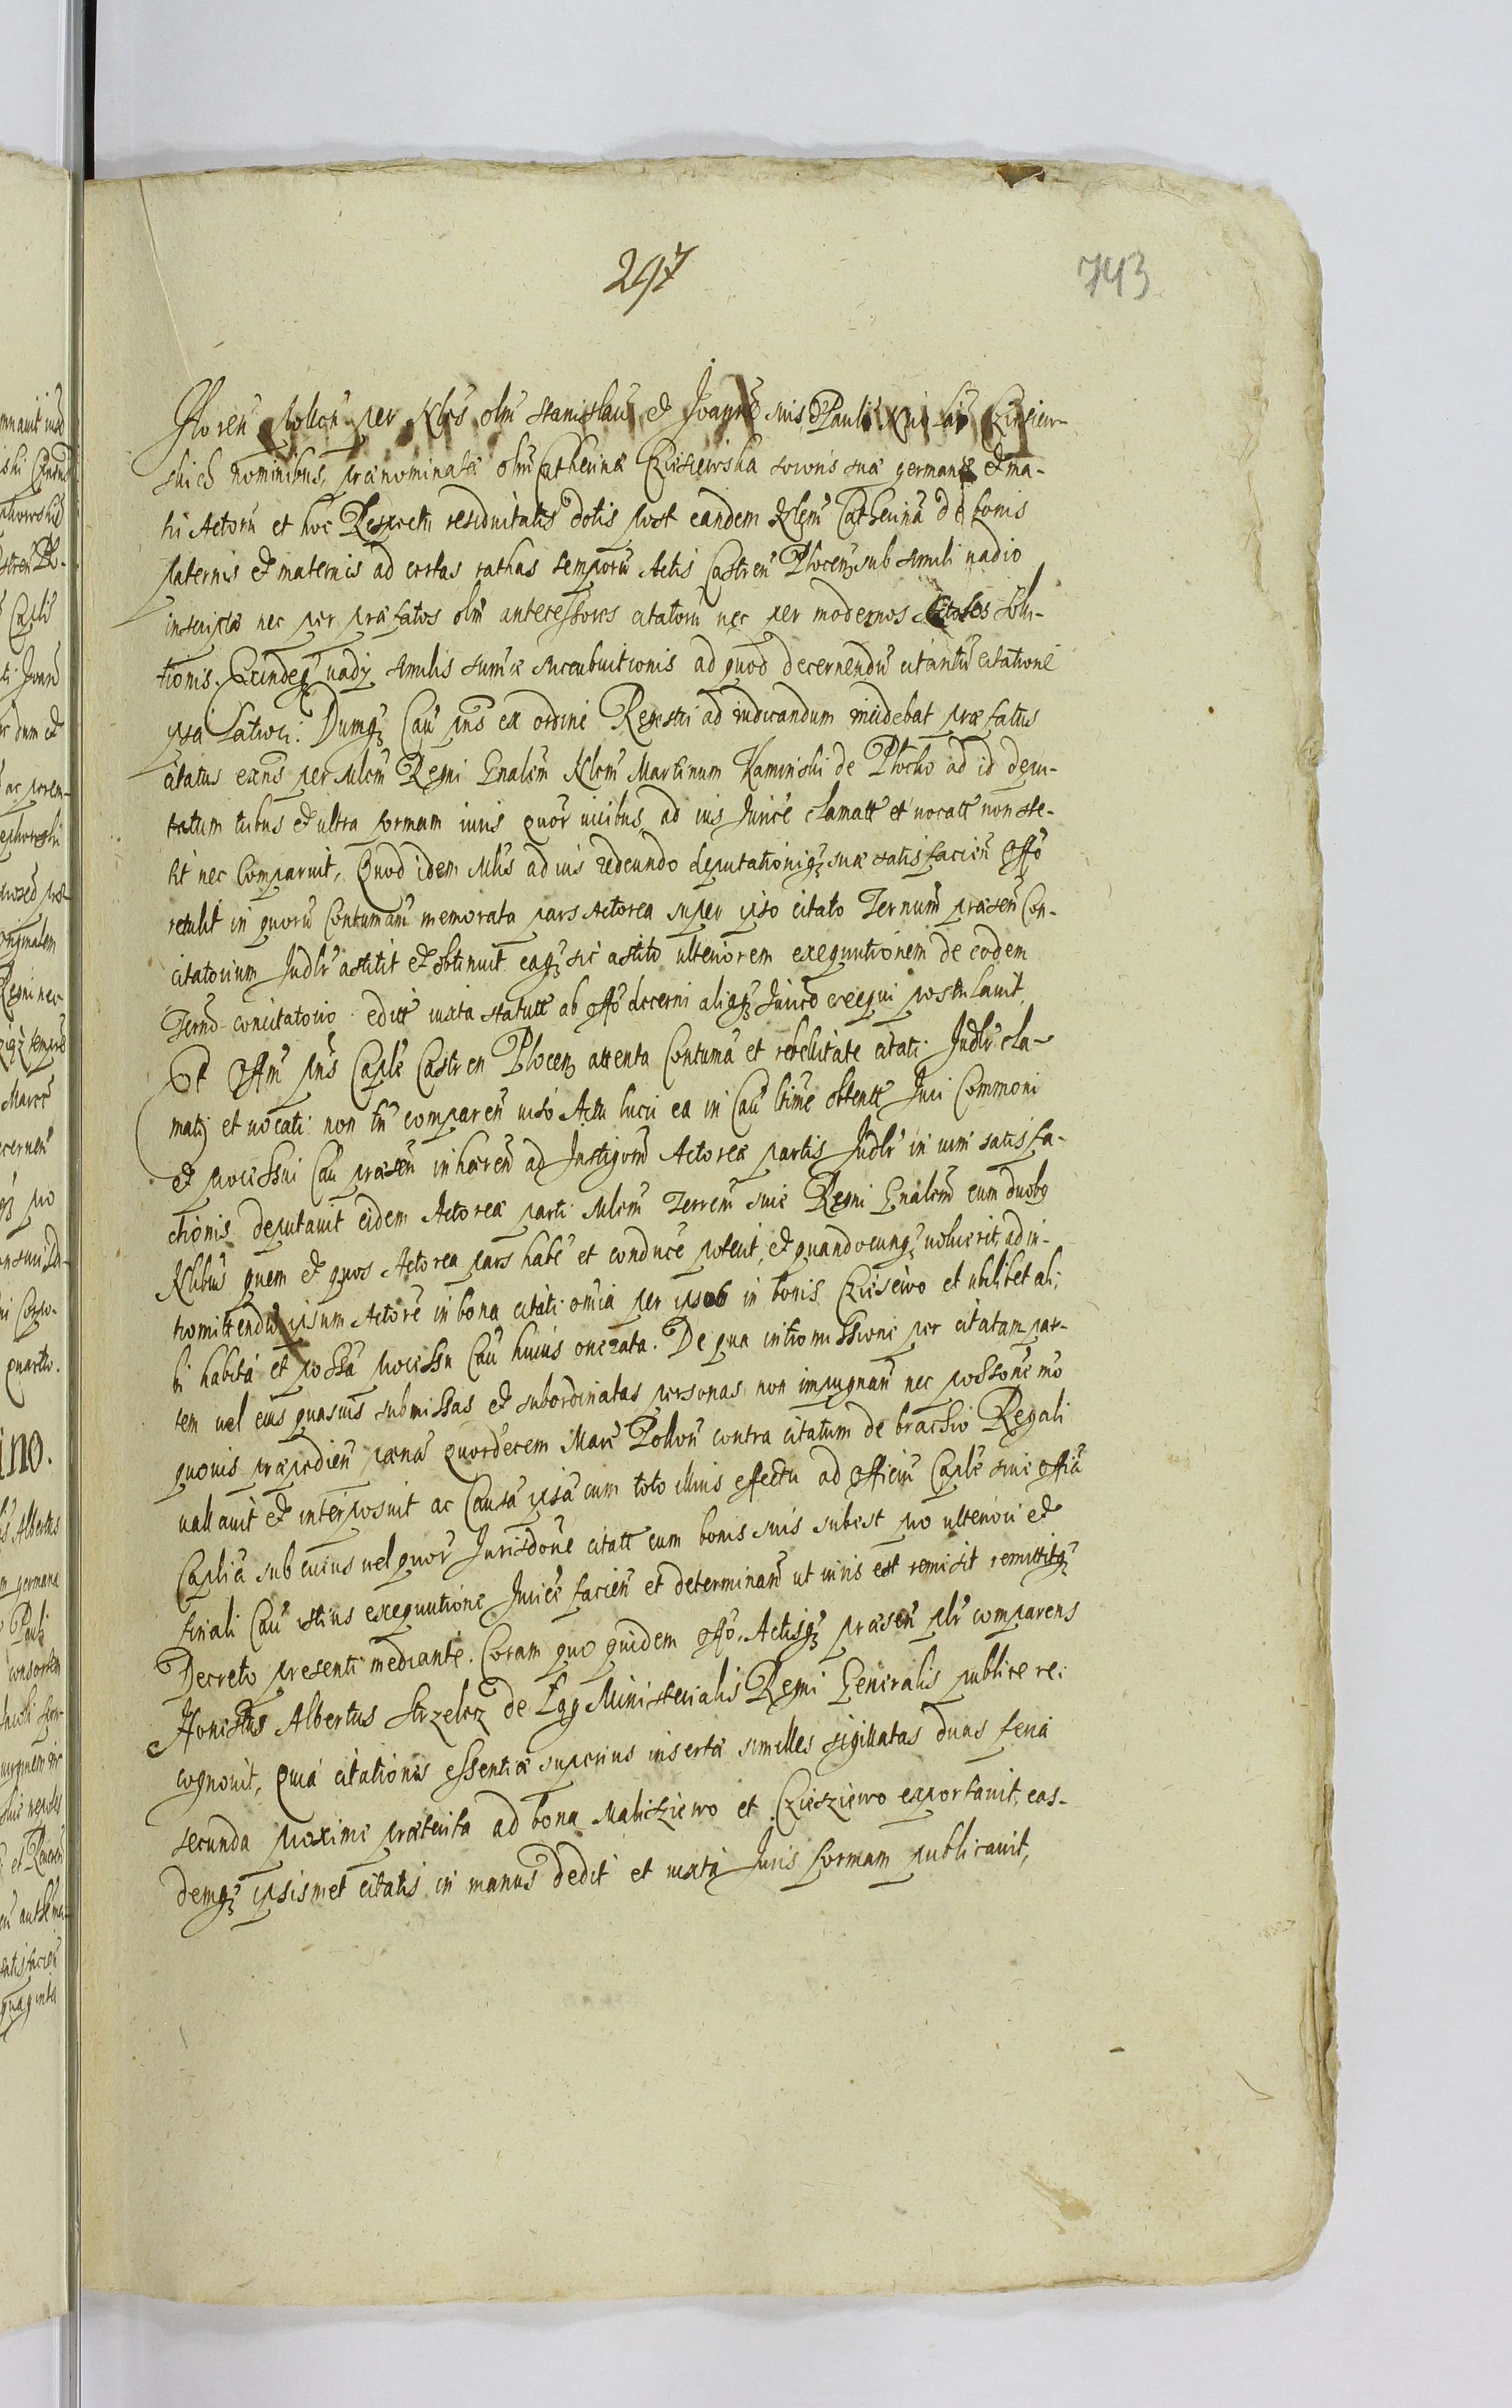 297
743
Floren pollon per Nbles olim Stanislaum et Joannem suis et Pauli Cziesiew-
skich nominibus, prænominatæ olim Catherinæ Cziesiewska sororis suæ germanæ et ma-
tri Actorum et hoc Respectu residuitatis dotis post eandem Nlem Catherinā de bonis
paternis et maternis ad certas rathas temporū Actis Castren̄ Plocen̄ sub simili vadio
inscriptæ nec per præfatos olim antecessores citatorū nec per modernos citatos solu-
tionis. Exindeq vadÿ similis sumæ succubuitionis ad quod decernendū citantur citatione
ipsa latiori. Dumq Cau pn̄s ex ordine Regestri ad iudicandum incidebat præfatus
citatus exn̄s per Mlem Regni Gnalem Nlem Martinum Kaminski de Plocko ad id depu-
tatum tribus et ultra formam iuris quor vicibus ad ius Jurice clamatt et vocatt non ste-
tit nec Comparuit, Quod idem Mlis ad ius redeundo deputationiq suæ satisfacien̄ Offo
retulit in quorū Contumam̄ memorata pars Actorea super ipso citato Ternum̄ præsen̄ Con-
citatorium Judlr astitit et obtinuit eaq sic astito ulteriorem exequutionem de eodem
Termo concitatorio editt iuxta statutt ab offo decerni aliaq Jurico exequi postulauit
Et Offm pn̄s Caple Castren Plocen attenta Contuma et rebellitate citati Judlr cla-
matj et vocati non tn̄ comparen̄ viso Actu lucri ea in Cau ltime obtentt Juri Commoni
et processui Cau præsen̄ inhæren̄ ad Instigom̄ Actoreæ partis Judlr in vim satisfa-
ctionis deputauit eidem Actoreæ parti Mlem Terrem̄ siue Regni Gnalem cum duobq
Nlibus quem et quos Actorea pars habe et conduce poterit, et quandocunq uoluerit ad in-
tromittendū ipsum Actorē in bona citati omīa per ipsos in bonis Cziesiewo et ubilibet ali-
bi habita et possa processu Cau huius onerata. De qua intromissione per citatam par-
tem uel eius quasuis submissas et subordinatas personas non impugnan̄ nec possone mo
quouis præpedien̄ pæna quordecem Marc Pollon̄ contra citatum de brachio Regali
uallauit et interposuit ac Causā ipsā cum toto illius effectu ad officiū Caple siue offia
Caplia sub cuius uel quor Jurisdone citatt cum bonis suis subest pro ulteriori et
finali Cau istius exequutione Jurice facien̄ et determinan̄ ut iuris est remisit remittitq
Decreto presenti mediante. Coram quo quidem offo Actisq præsen̄ plr comparens
Honestus Albertus Strzelcz de Lgÿ Ministerialis Regni Generalis publice re-
cognouit, Quia citationis essentiæ superius insertæ simillēs sigillatas duas feria
secunda proxime præterita ad bona Maliszewo et Cziesziewo exportauit, eas-
demq ipsismet citatis in manus dedit et iuxta Juris formam publicauit,